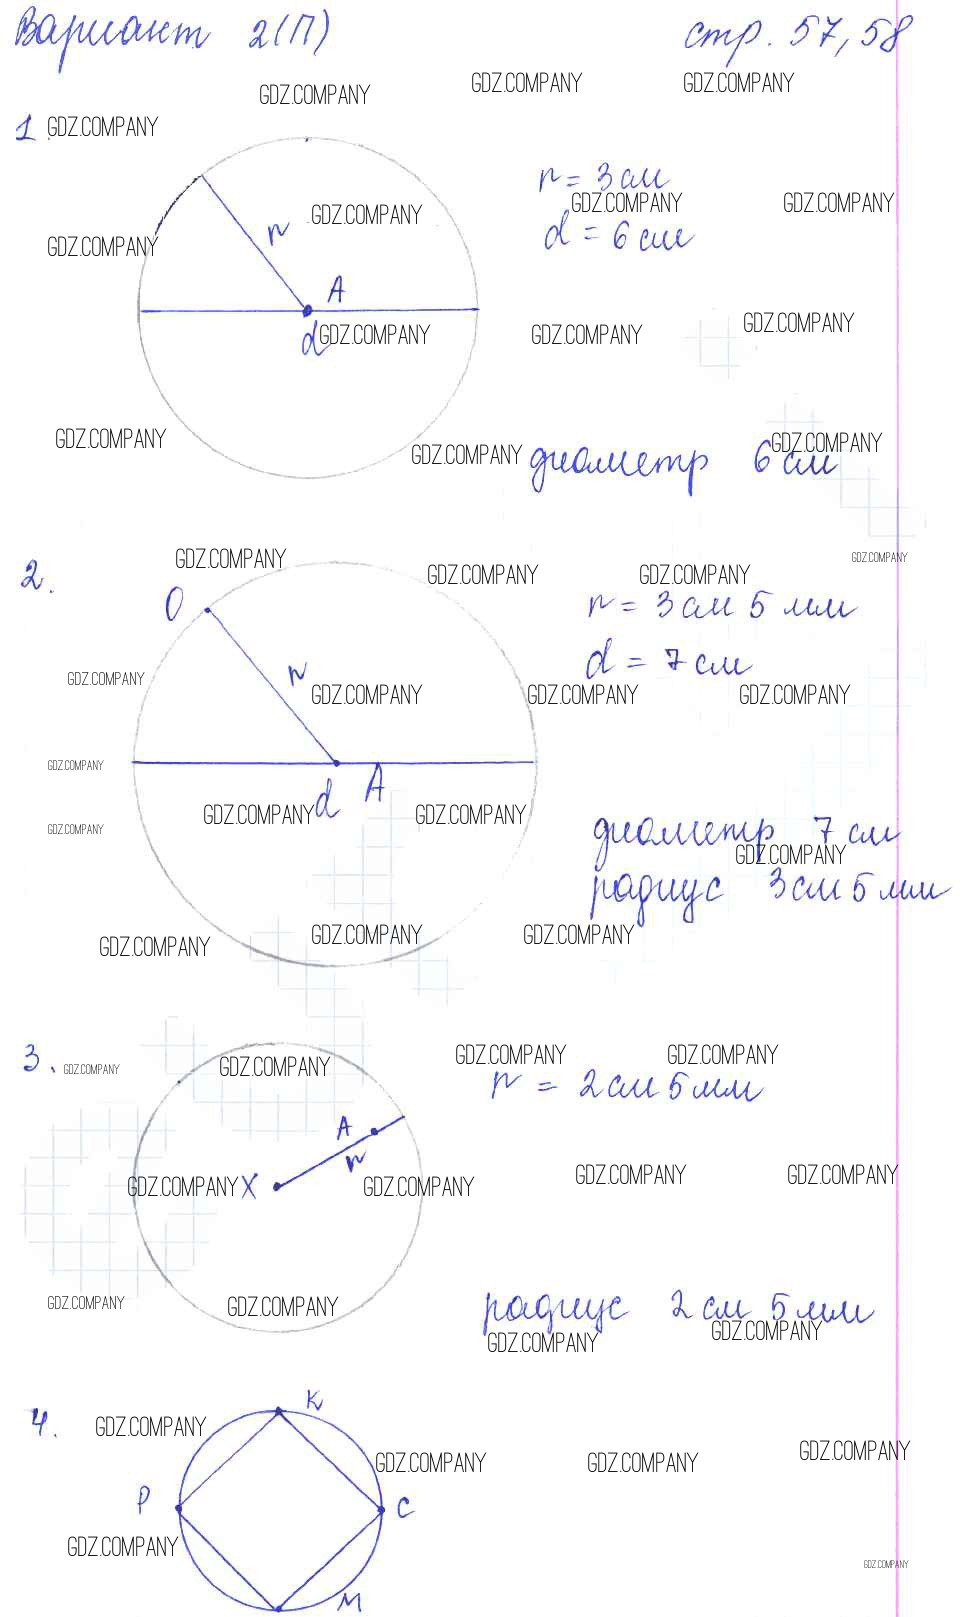 Вариант 2(П) стр. 57, 58
GDZ.COMPANY GDZ.COMPANY GDZ.COMPANY
1. GDZ.COMPANY
r = 3 см
GDZ.COMPANY GDZ.COMPANY GDZ.COMPANY
r d = 6 см
GDZ.COMPANY
A
d GDZ.COMPANY GDZ.COMPANY GDZ.COMPANY
GDZ.COMPANY GDZ.COMPANY GDZ.COMPANY
диаметр 6 см
2. GDZ.COMPANY GDZ.COMPANY GDZ.COMPANY GDZ.COMPANY
O r = 3 см 5 мм
d = 7 см
GDZ.COMPANY r GDZ.COMPANY GDZ.COMPANY GDZ.COMPANY
GDZ.COMPANY
d A
GDZ.COMPANY GDZ.COMPANY GDZ.COMPANY
диаметр 7 см
GDZ.COMPANY
радиус 3 см 5 мм
GDZ.COMPANY GDZ.COMPANY GDZ.COMPANY
3. GDZ.COMPANY GDZ.COMPANY GDZ.COMPANY GDZ.COMPANY
r = 2 см 5 мм
A
r
GDZ.COMPANY X GDZ.COMPANY GDZ.COMPANY GDZ.COMPANY
GDZ.COMPANY GDZ.COMPANY
радиус 2 см 5 мм
GDZ.COMPANY GDZ.COMPANY
K
4. GDZ.COMPANY
GDZ.COMPANY GDZ.COMPANY GDZ.COMPANY
P C
GDZ.COMPANY GDZ.COMPANY
M